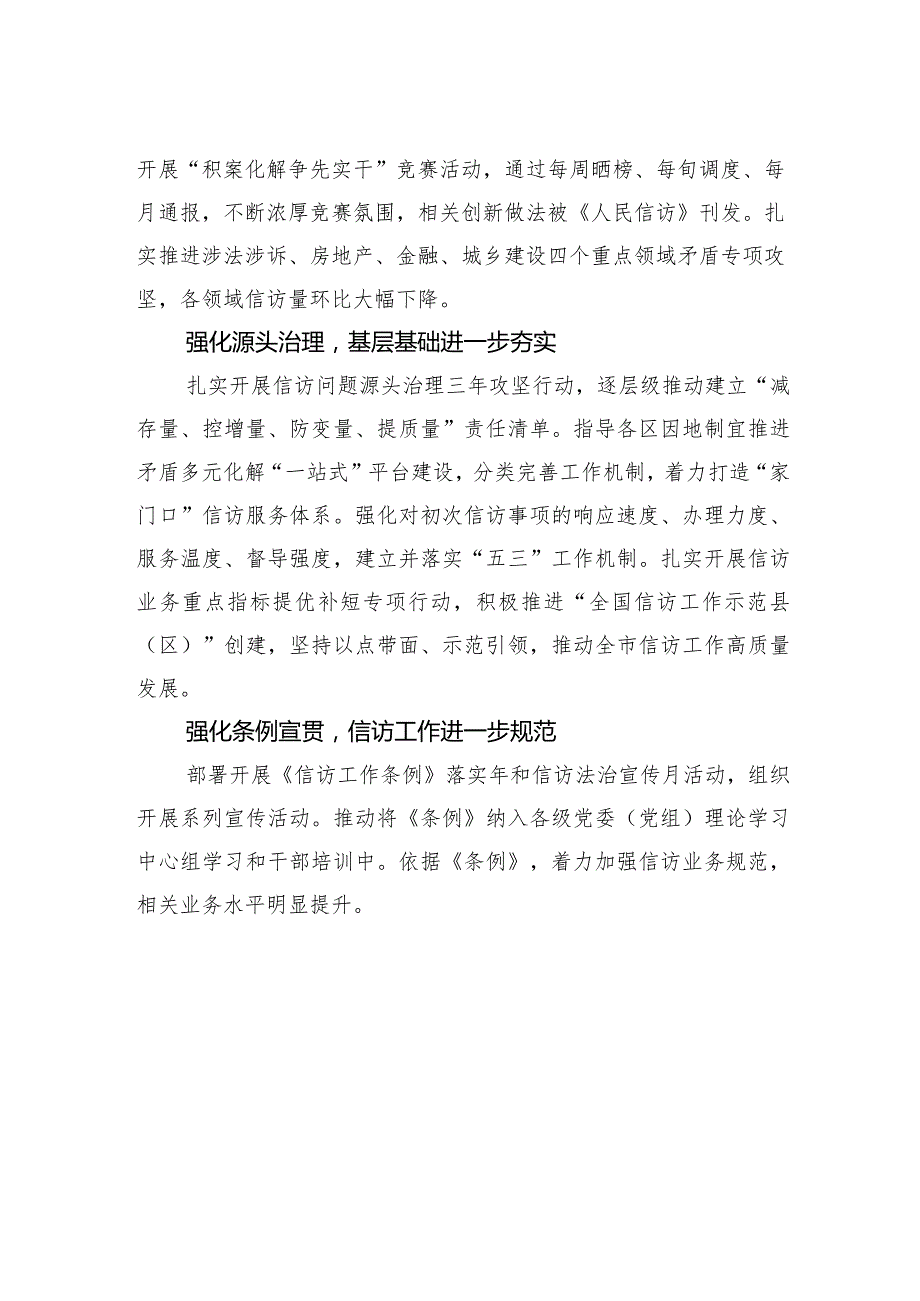 开展“积案化解争先实干”竞赛活动，通过每周晒榜、每旬调度、每
月通报，不断浓厚竞赛氛围，相关创新做法被《人民信访》刊发。扎
实推进涉法涉诉、房地产、金融、城乡建设四个重点领域矛盾专项攻
坚，各领域信访量环比大幅下降。
强化源头治理，基层基础进一步夯实
扎实开展信访问题源头治理三年攻坚行动，逐层级推动建立“减
存量、控增量、防变量、提质量”责任清单。指导各区因地制宜推进
矛盾多元化解“一站式”平台建设，分类完善工作机制，着力打造“家
门口”信访服务体系。强化对初次信访事项的响应速度、办理力度、
服务温度、督导强度，建立并落实“五三”工作机制。扎实开展信访
业务重点指标提优补短专项行动，积极推进“全国信访工作示范县
（区）”创建，坚持以点带面、示范引领，推动全市信访工作高质量
发展。
强化条例宣贯，信访工作进一步规范
部署开展《信访工作条例》落实年和信访法治宣传月活动，组织
开展系列宣传活动。推动将《条例》纳入各级党委（党组）理论学习
中心组学习和干部培训中。依据《条例》，着力加强信访业务规范，
相关业务水平明显提升。